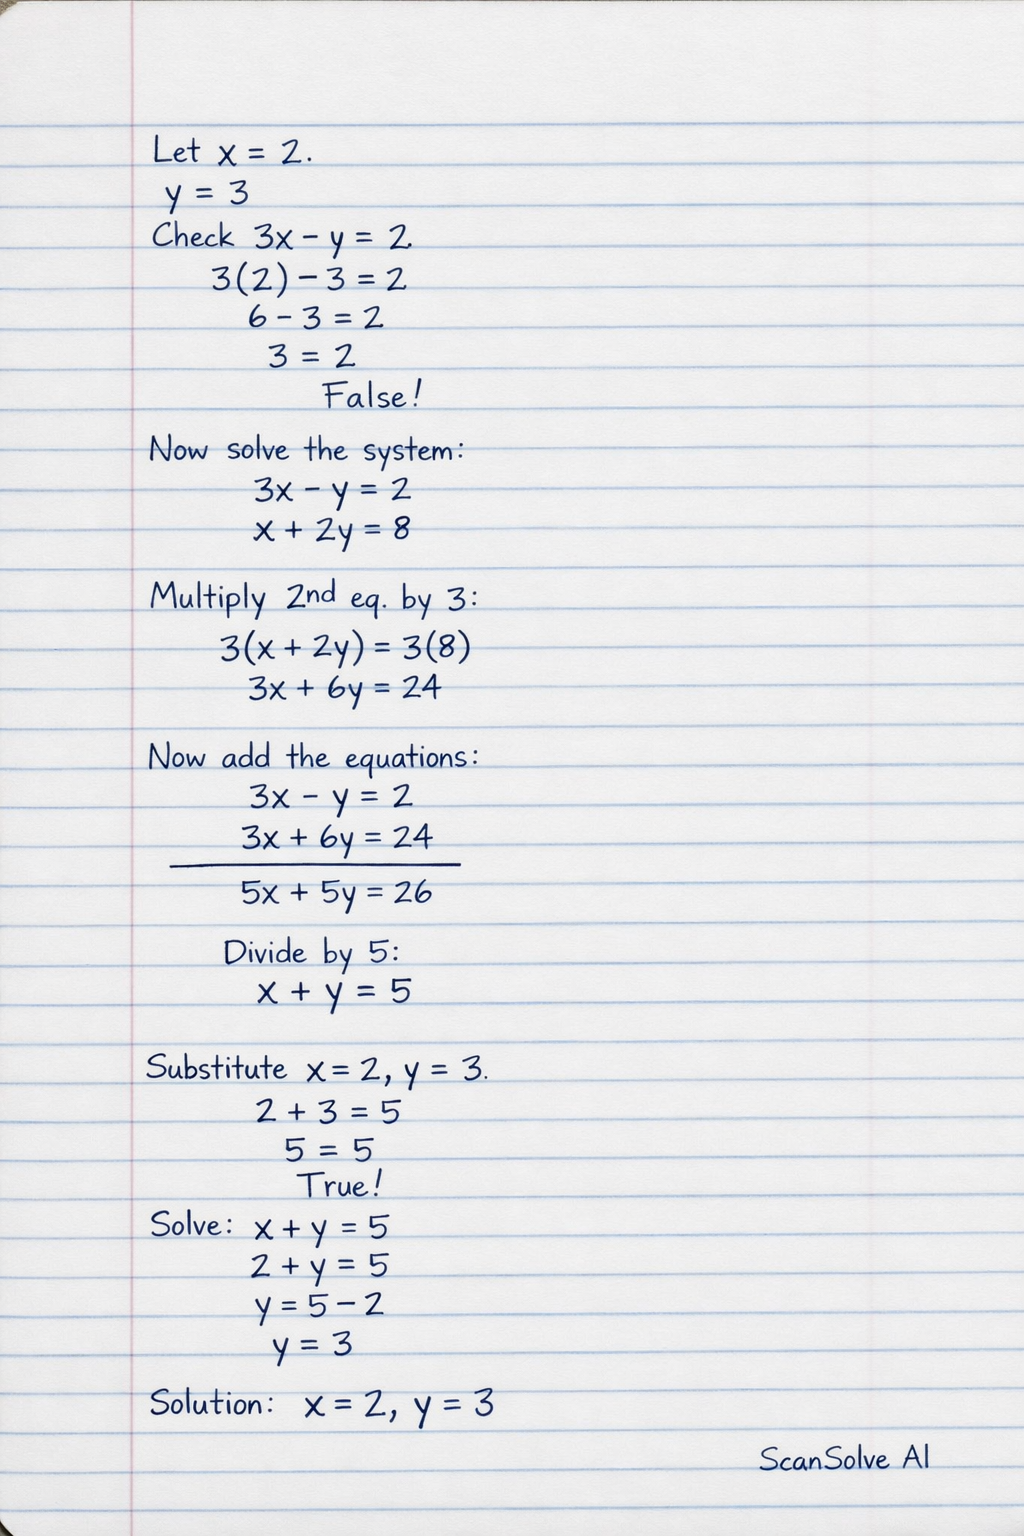 Let x = 2.
y = 3
Check 3x - y = 2
3(2) - 3 = 2
6 - 3 = 2
3 = 2
False!
Now solve the system:
3x - y = 2
x + 2y = 8
Multiply 2nd eq. by 3:
3(x + 2y) = 3(8)
3x + 6y = 24
Now add the equations:
3x - y = 2
3x + 6y = 24
5x + 5y = 26
Divide by 5:
x + y = 5
Substitute x = 2, y = 3.
2 + 3 = 5
5 = 5
True!
Solve: x + y = 5
2 + y = 5
y = 5 - 2
y = 3
Solution: x = 2, y = 3
ScanSolve AI